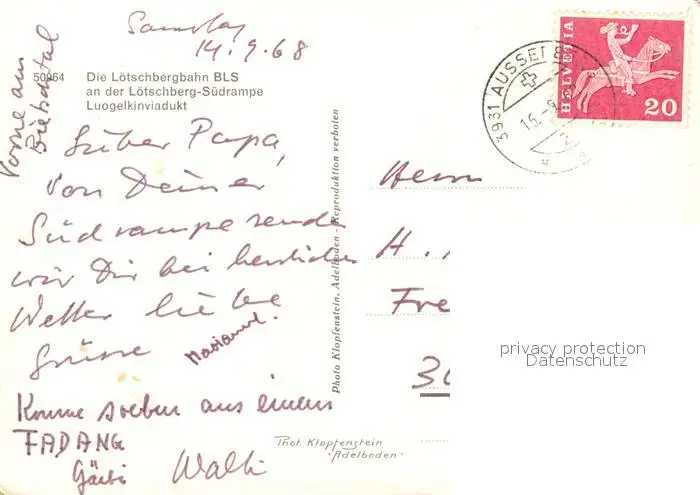 Samstag
14.9.68
Vorne am
50964 Die Lötschbergbahn BLS
an der Lötschberg-Südrampe
Luogelkinviadukt
Lieber Papa,
von Deiner
Südrampe senden
wir Dir bei herrlichem
Wetter liebe
Grüsse
Marianne.
Komme soeben aus einem
FADANG
Walti
Photo Klopfenstein, Adelboden - Reproduktion verboten
Phot. Klopfenstein
- Adelboden -
HELVETIA
20
3931 AUSSERBERG
15.-9
Herrn
H.
Fre
30
privacy protection
Datenschutz